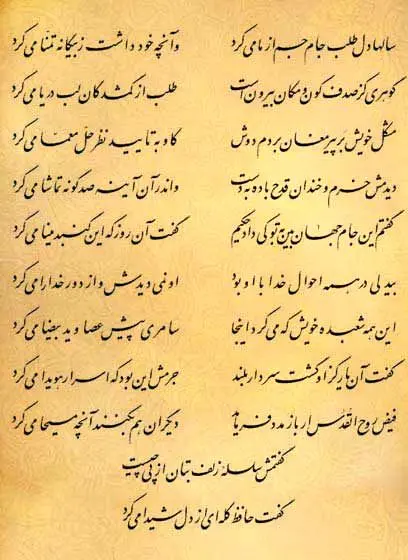 سالها دل طلب جام جم از ما می‌کرد وآنچه خود داشت ز بیگانه تمنا می‌کرد
گوهری کز صدف کون و مکان بیرون است طلب از گمشدگان لب دریا می‌کرد
مشکل خویش بر پیر مغان بردم دوش کاو به تایید نظر حل معما می‌کرد
دیدمش خرم و خندان قدح باده به دست واندر آن آینه صد گونه تماشا می‌کرد
گفتم این جام جهان بین به تو کی داد حکیم گفت آن روز که این گنبد مینا می‌کرد
بیدلی در همه احوال خدا با او بود او نمی‌دیدش و از دور خدا را می‌کرد
این همه شعبده خویش که می‌کرد اینجا سامری پیش عصا و ید بیضا می‌کرد
گفت آن یار کز او گشت سر دار بلند جرمش این بود که اسرار هویدا می‌کرد
فیض روح القدس ار باز مدد فرماید دیگران هم بکنند آنچه مسیحا می‌کرد
گفتمش سلسله زلف بتان از پی چیست
گفت حافظ گله‌ای از دل شیدا می‌کرد